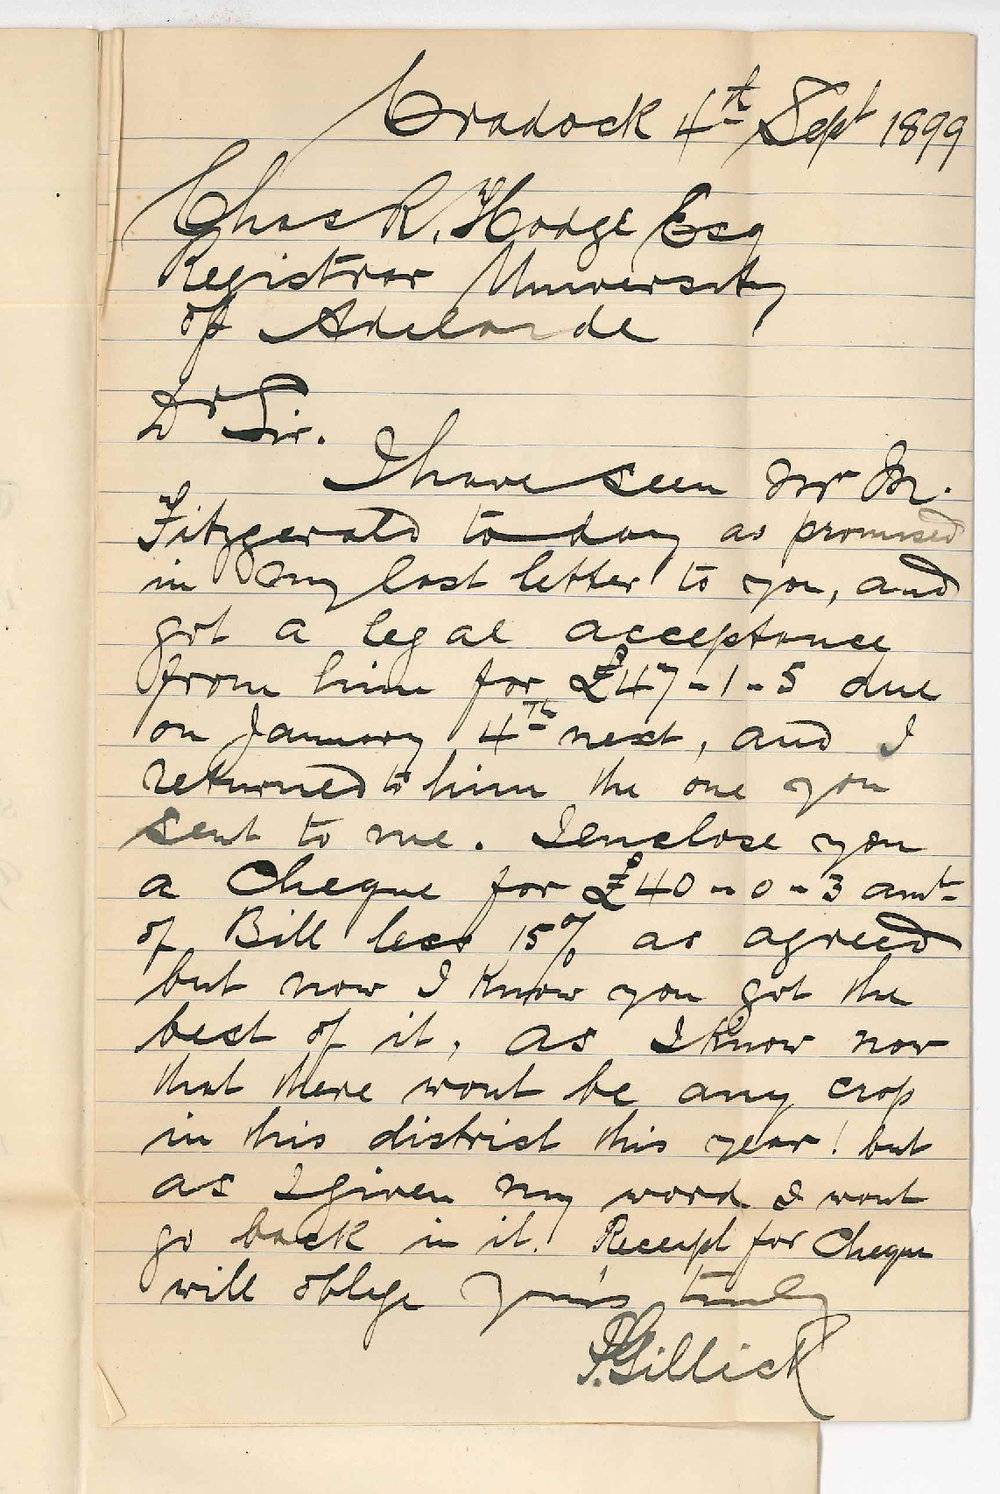 Cradock 4th Sept 1899
Chas R. Hodge Esq
Registrar University
of Adelaide
Dr Sir.
I have seen Mr M.
Fitzgerald to day as promised
in my last letter to you, and
got a legal acceptance
from him for £47-1-5 due
on January 4th next, and I
returned to him the one you
sent to me. I enclose you
a Cheque for £40-0-3 amt
of Bill less 15% as agreed
but now I know you got the
best of it, as I know now
that there wont be any crop
in this district this year! but
as I given my word I wont
go back in it! Receipt for Cheque
will oblige Your's truly
P. Gillick